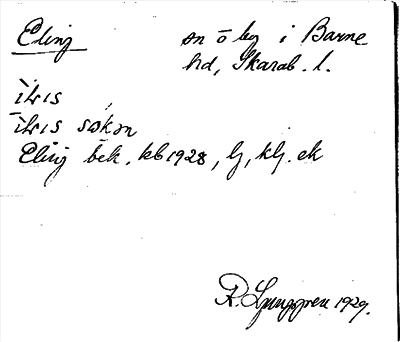 Eling sn o by i Barne
hd, Skarab. l.
ìlıs
ìlıs søkn
Eling bek. kb 1928, lj, klj. ek
R. Ljunggren 1929.